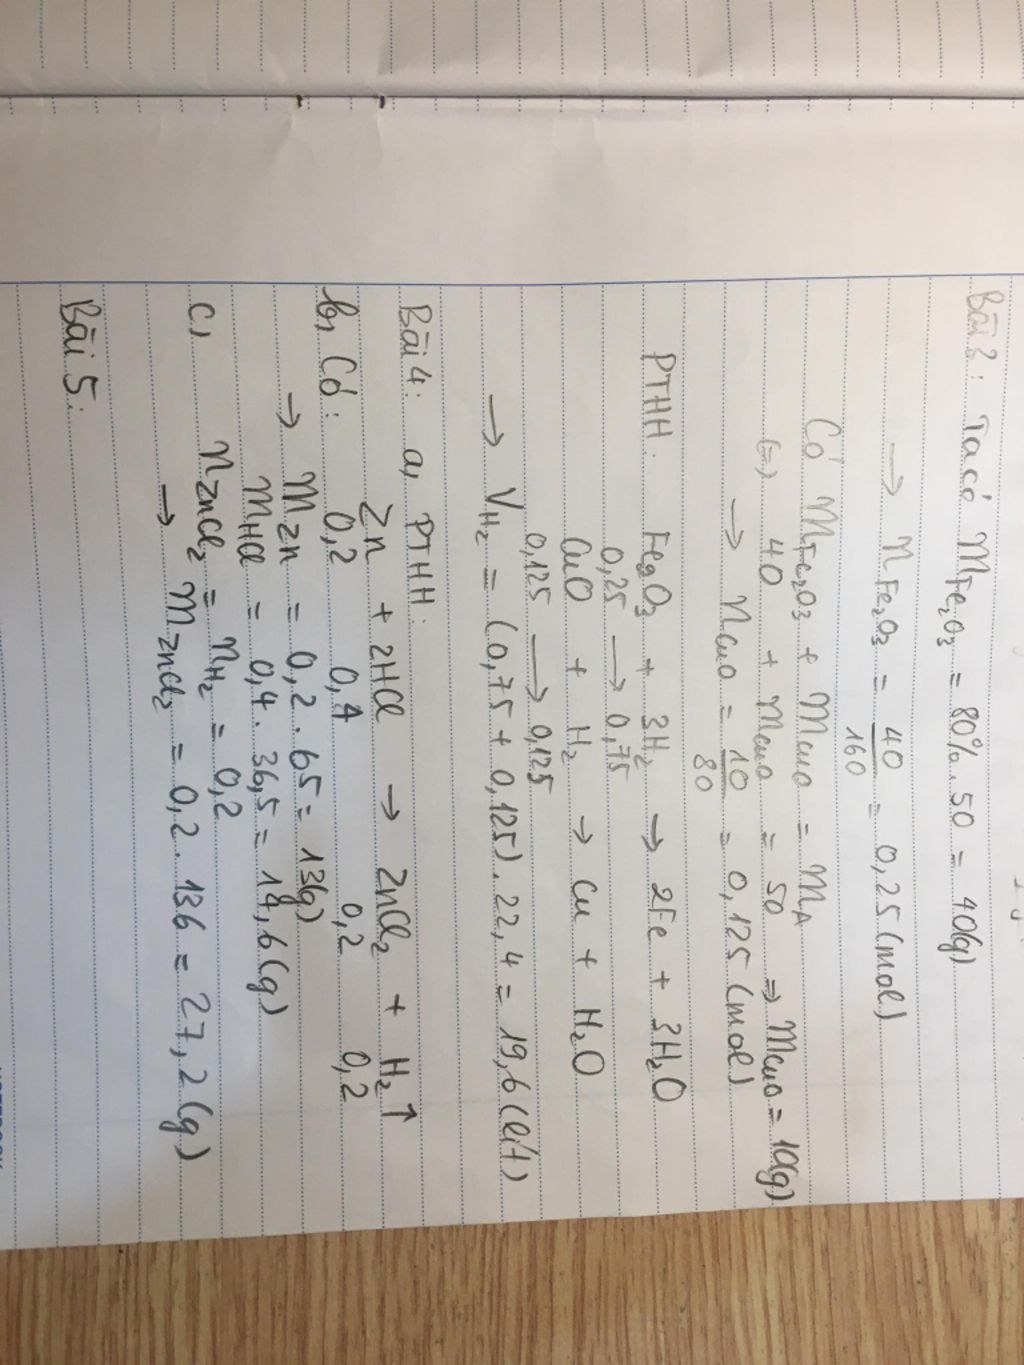 Bài 3: Ta có mFe₂O₃ = 80%.50 = 40(g)
→ nFe₂O₃ = 40/160 = 0,25 (mol)
Có mFe₂O₃ + mCuO = mA
(=) 40 + mCuO = 50 => mCuO = 10(g)
→ nCuO = 10/80 = 0,125 (mol)
PTHH: Fe₂O₃ + 3H₂ → 2Fe + 3H₂O
0,25 → 0,75
CuO + H₂ → Cu + H₂O
0,125 → 0,125
→ VH₂ = (0,75 + 0,125).22,4 = 19,6 (lít)
Bài 4: a, PTHH:
Zn + 2HCl → ZnCl₂ + H₂↑
b, Có: 0,2 0,4 0,2 0,2
→ mZn = 0,2.65 = 13(g)
mHCl = 0,4.36,5 = 14,6(g)
c, nZnCl₂ = nH₂ = 0,2
→ mZnCl₂ = 0,2.136 = 27,2(g)
Bài 5: